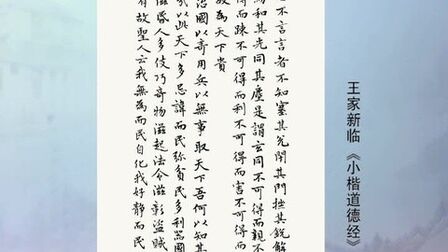 不言言者不知塞其兑閉其門挫其銳解
和其光同其塵是謂玄同不可得而親不
得而踈不可得而利不可得而害不可得而
故為天下貴
治國以奇用兵以無事取天下吾何以知其
以此天下多忌諱而民弥貧民多利器國
滋人多伎巧奇物滋起法令滋彰盜賊
有故聖人云我無為而民自化我好靜而民
王家新临《小楷道德经》